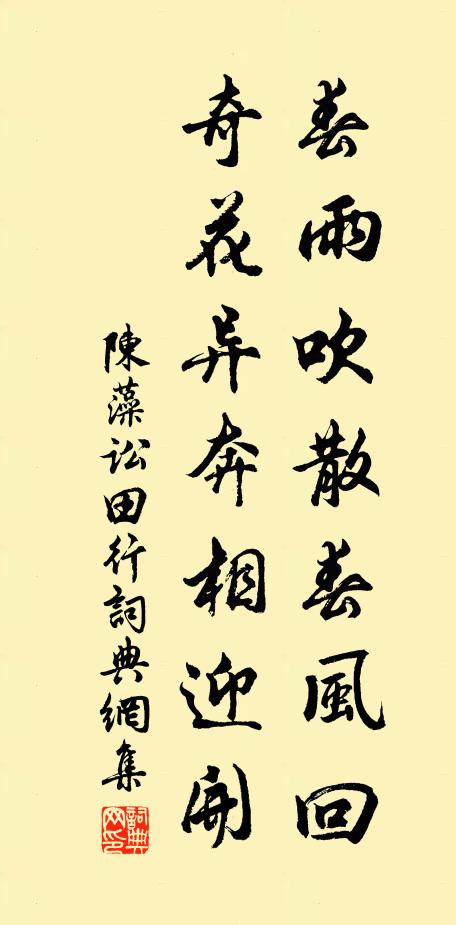 春雨吹散春風回
奇花异奔相迎開
陳藻訟田行詞典網集
詞典網印